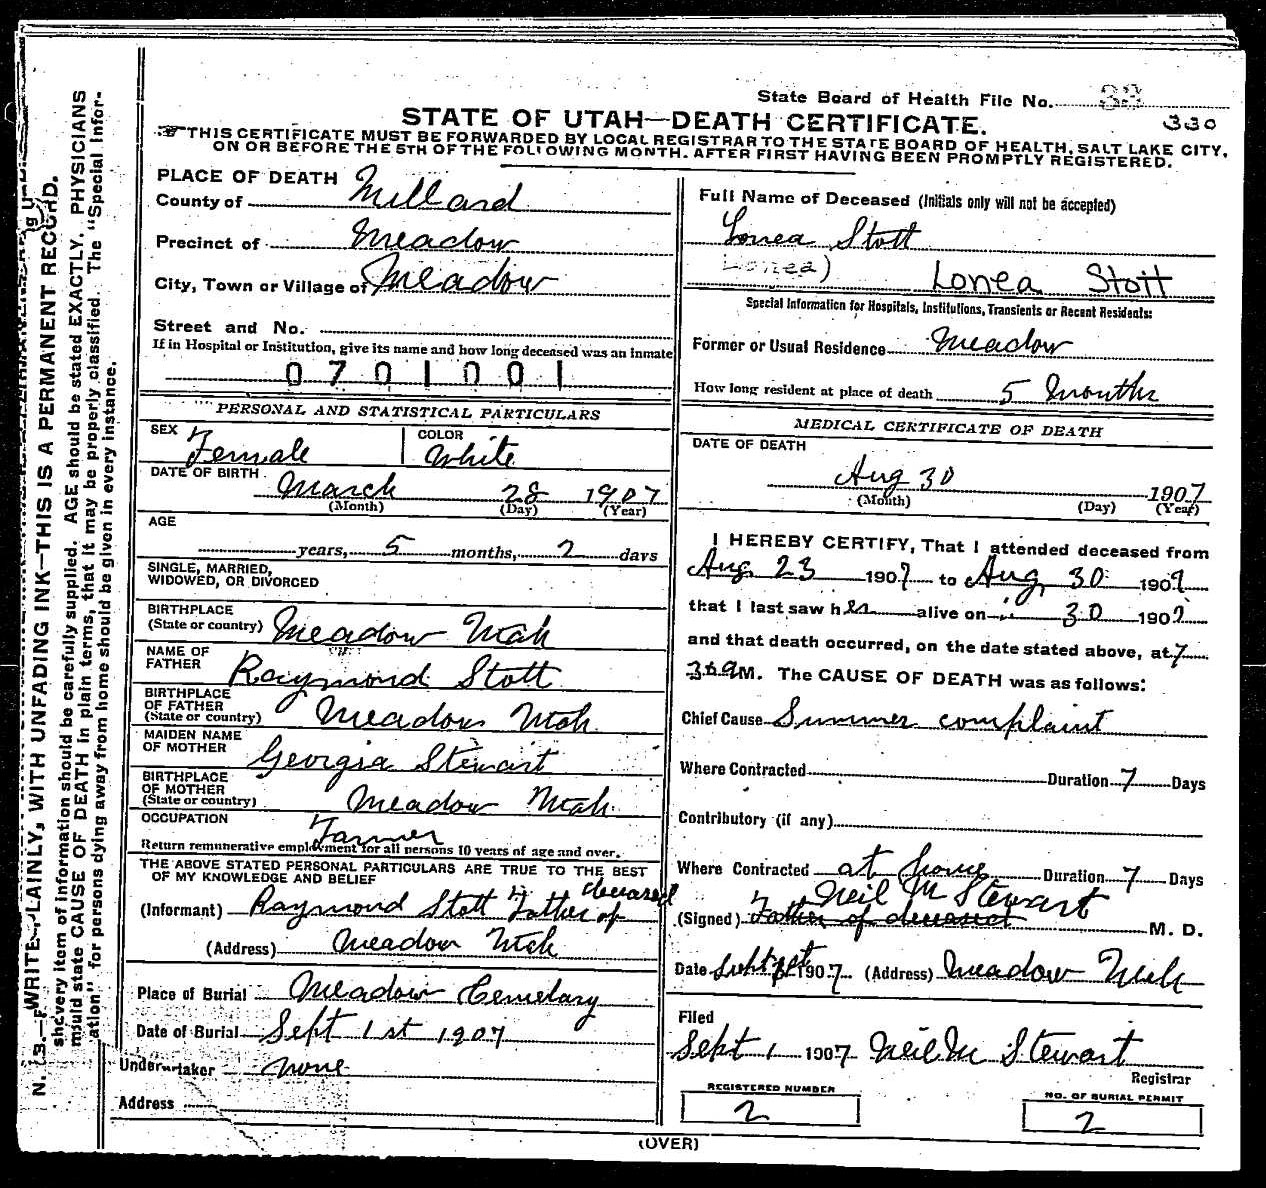 State Board of Health File No. 33
330
STATE OF UTAH—DEATH CERTIFICATE.
THIS CERTIFICATE MUST BE FORWARDED BY LOCAL REGISTRAR TO THE STATE BOARD OF HEALTH, SALT LAKE CITY,
ON OR BEFORE THE 5TH OF THE FOLLOWING MONTH. AFTER FIRST HAVING BEEN PROMPTLY REGISTERED.
PLACE OF DEATH
County of Millard
Precinct of Meadow
City, Town or Village of Meadow
Street and No.
If in Hospital or Institution, give its name and how long deceased was an inmate
0701001
PERSONAL AND STATISTICAL PARTICULARS
SEX Female
COLOR White
DATE OF BIRTH March 28 1907
(Month) (Day) (Year)
AGE
years, 5 months, 2 days
SINGLE, MARRIED,
WIDOWED, OR DIVORCED
BIRTHPLACE
(State or country) Meadow Utah
NAME OF
FATHER Raymond Stott
BIRTHPLACE
OF FATHER
(State or country) Meadow Utah
MAIDEN NAME
OF MOTHER Georgia Stewart
BIRTHPLACE
OF MOTHER
(State or country) Meadow Utah
OCCUPATION Farmer
Return remunerative employment for all persons 10 years of age and over.
THE ABOVE STATED PERSONAL PARTICULARS ARE TRUE TO THE BEST
OF MY KNOWLEDGE AND BELIEF
(Informant) Raymond Stott Father of deceased
(Address) Meadow Utah
Place of Burial Meadow Cemetary
Date of Burial Sept 1st 1907
Undertaker none
Address
Full Name of Deceased (Initials only will not be accepted)
Lonea Stott
Lonea) Lonea Stott
Special Information for Hospitals, Institutions, Transients or Recent Residents:
Former or Usual Residence Meadow
How long resident at place of death 5 Months
MEDICAL CERTIFICATE OF DEATH
DATE OF DEATH
Aug 30 1907
(Month) (Day) (Year)
I HEREBY CERTIFY, That I attended deceased from
Aug 23 1907 to Aug 30 1907
that I last saw her alive on " 30 1907
and that death occurred, on the date stated above, at 7
30 a M. The CAUSE OF DEATH was as follows:
Chief Cause Summer complaint
Where Contracted Duration 7 Days
Contributory (if any)
Where Contracted at home Duration 7 Days
Neil M Stewart
(Signed) Father of deceased M. D.
Date Sept 1st 1907 (Address) Meadow Utah
Filed
Sept 1 1907 Neil M Stewart
Registrar
REGISTERED NUMBER
2
NO. OF BURIAL PERMIT
2
(OVER)
WRITE PLAINLY, WITH UNFADING INK—THIS IS A PERMANENT RECORD.
N. B.—Every item of information should be carefully supplied. AGE should be stated EXACTLY. PHYSICIANS
should state CAUSE OF DEATH in plain terms, that it may be properly classified. The "Special Infor-
ation" for persons dying away from home should be given in every instance.